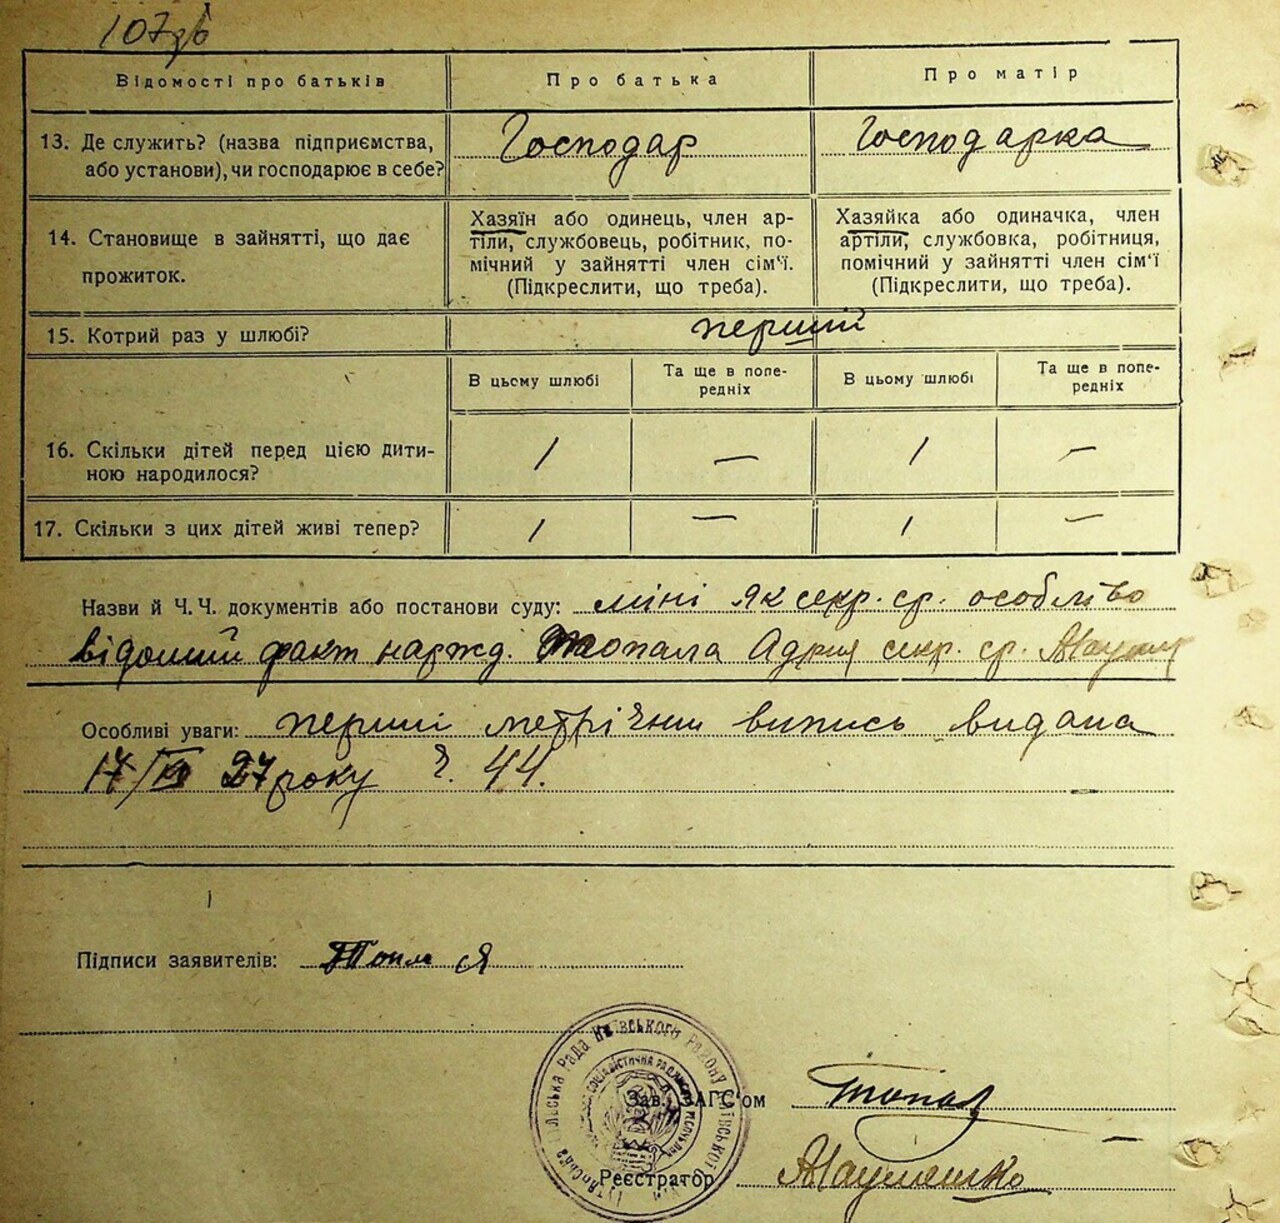 107зв
Відомості про батьків
Про батька
Про матір
13. Де служить? (назва підприємства,
або установи), чи господарює в себе?
Господар
Господарка
14. Становище в зайнятті, що дає
прожиток.
Хазяїн або одинець, член ар-
тіли, службовець, робітник, по-
мічний у зайнятті член сім'ї.
(Підкреслити, що треба).
Хазяйка або одиначка, член
артіли, службовка, робітниця,
помічний у зайнятті член сім'ї
(Підкреслити, що треба).
15. Котрий раз у шлюбі?
перший
В цьому шлюбі
Та ще в попе-
редніх
В цьому шлюбі
Та ще в попе-
редніх
16. Скільки дітей перед цією дити-
ною народилося?
1 — 1 —
17. Скільки з цих дітей живі тепер?
1 — 1 —
Назви й Ч.Ч. документів або постанови суду: міні як секр. ср. особливо
відомий факт наржд. Топала Адрия секр. ср.
Особливі уваги: перший метрічний випись видана
17/ 27 року ч. 44.
Підписи заявителів: Топал Я
Рада Київського Району
Зав. ЗАГС'ом Топал
Реєстратор